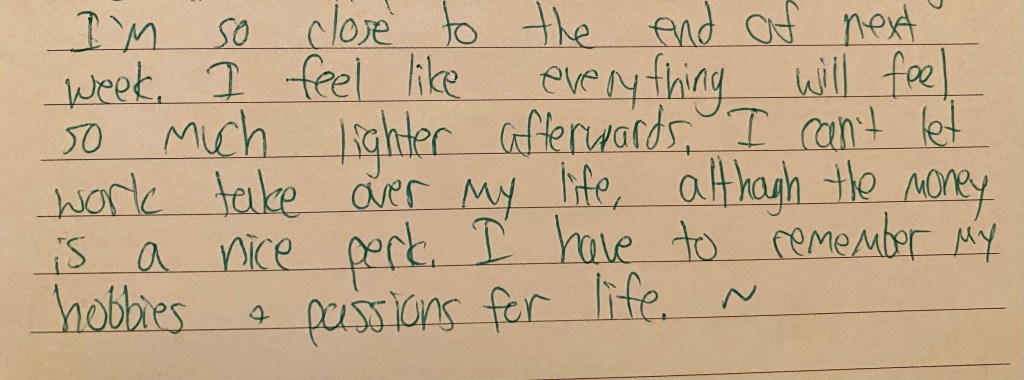 I'm so close to the end of next
week. I feel like everything will feel
so much lighter afterwards. I can't let
work take over my life, although the money
is a nice perk. I have to remember my
hobbies + passions for life. ~